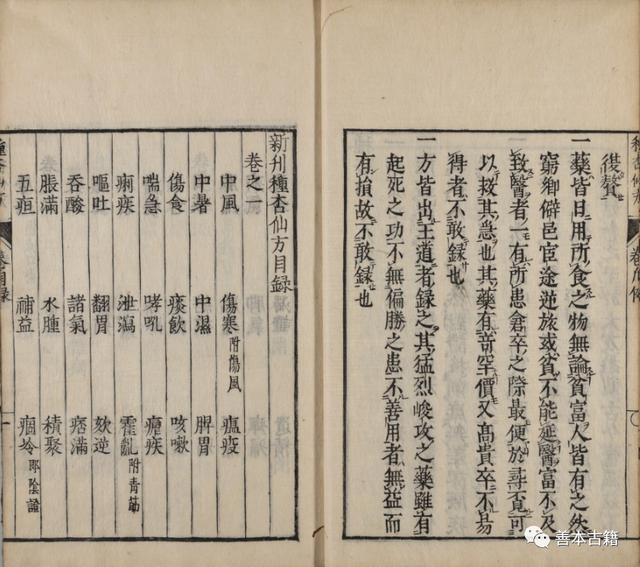 後贅
一藥皆日用所食之物無論貧富人皆有之然
窮鄉僻邑宦途逆旅或貧不能延醫富不及
致醫者一有所患倉卒之際最便於尋覓可
以救其急也其藥有苛罕價又髙貴卒不易
得者不敢録也
一方皆出王道者録之其猛烈峻攻之藥雖有
起死之功不無偏勝之患不善用者無益而
有損故不敢録也
新刊種杏仙方目録
卷之一
中風 傷寒附傷風 瘟疫
中暑 中濕 脾胃
傷食 痰飲 咳嗽
喘急 哮吼 瘧疾
痢疾 泄瀉 霍亂附青筋
嘔吐 翻胃 欬逆
吞酸 諸氣 痞滿
脹滿 水腫 積聚
五疸 補益 痼冷即陰證
善本古籍